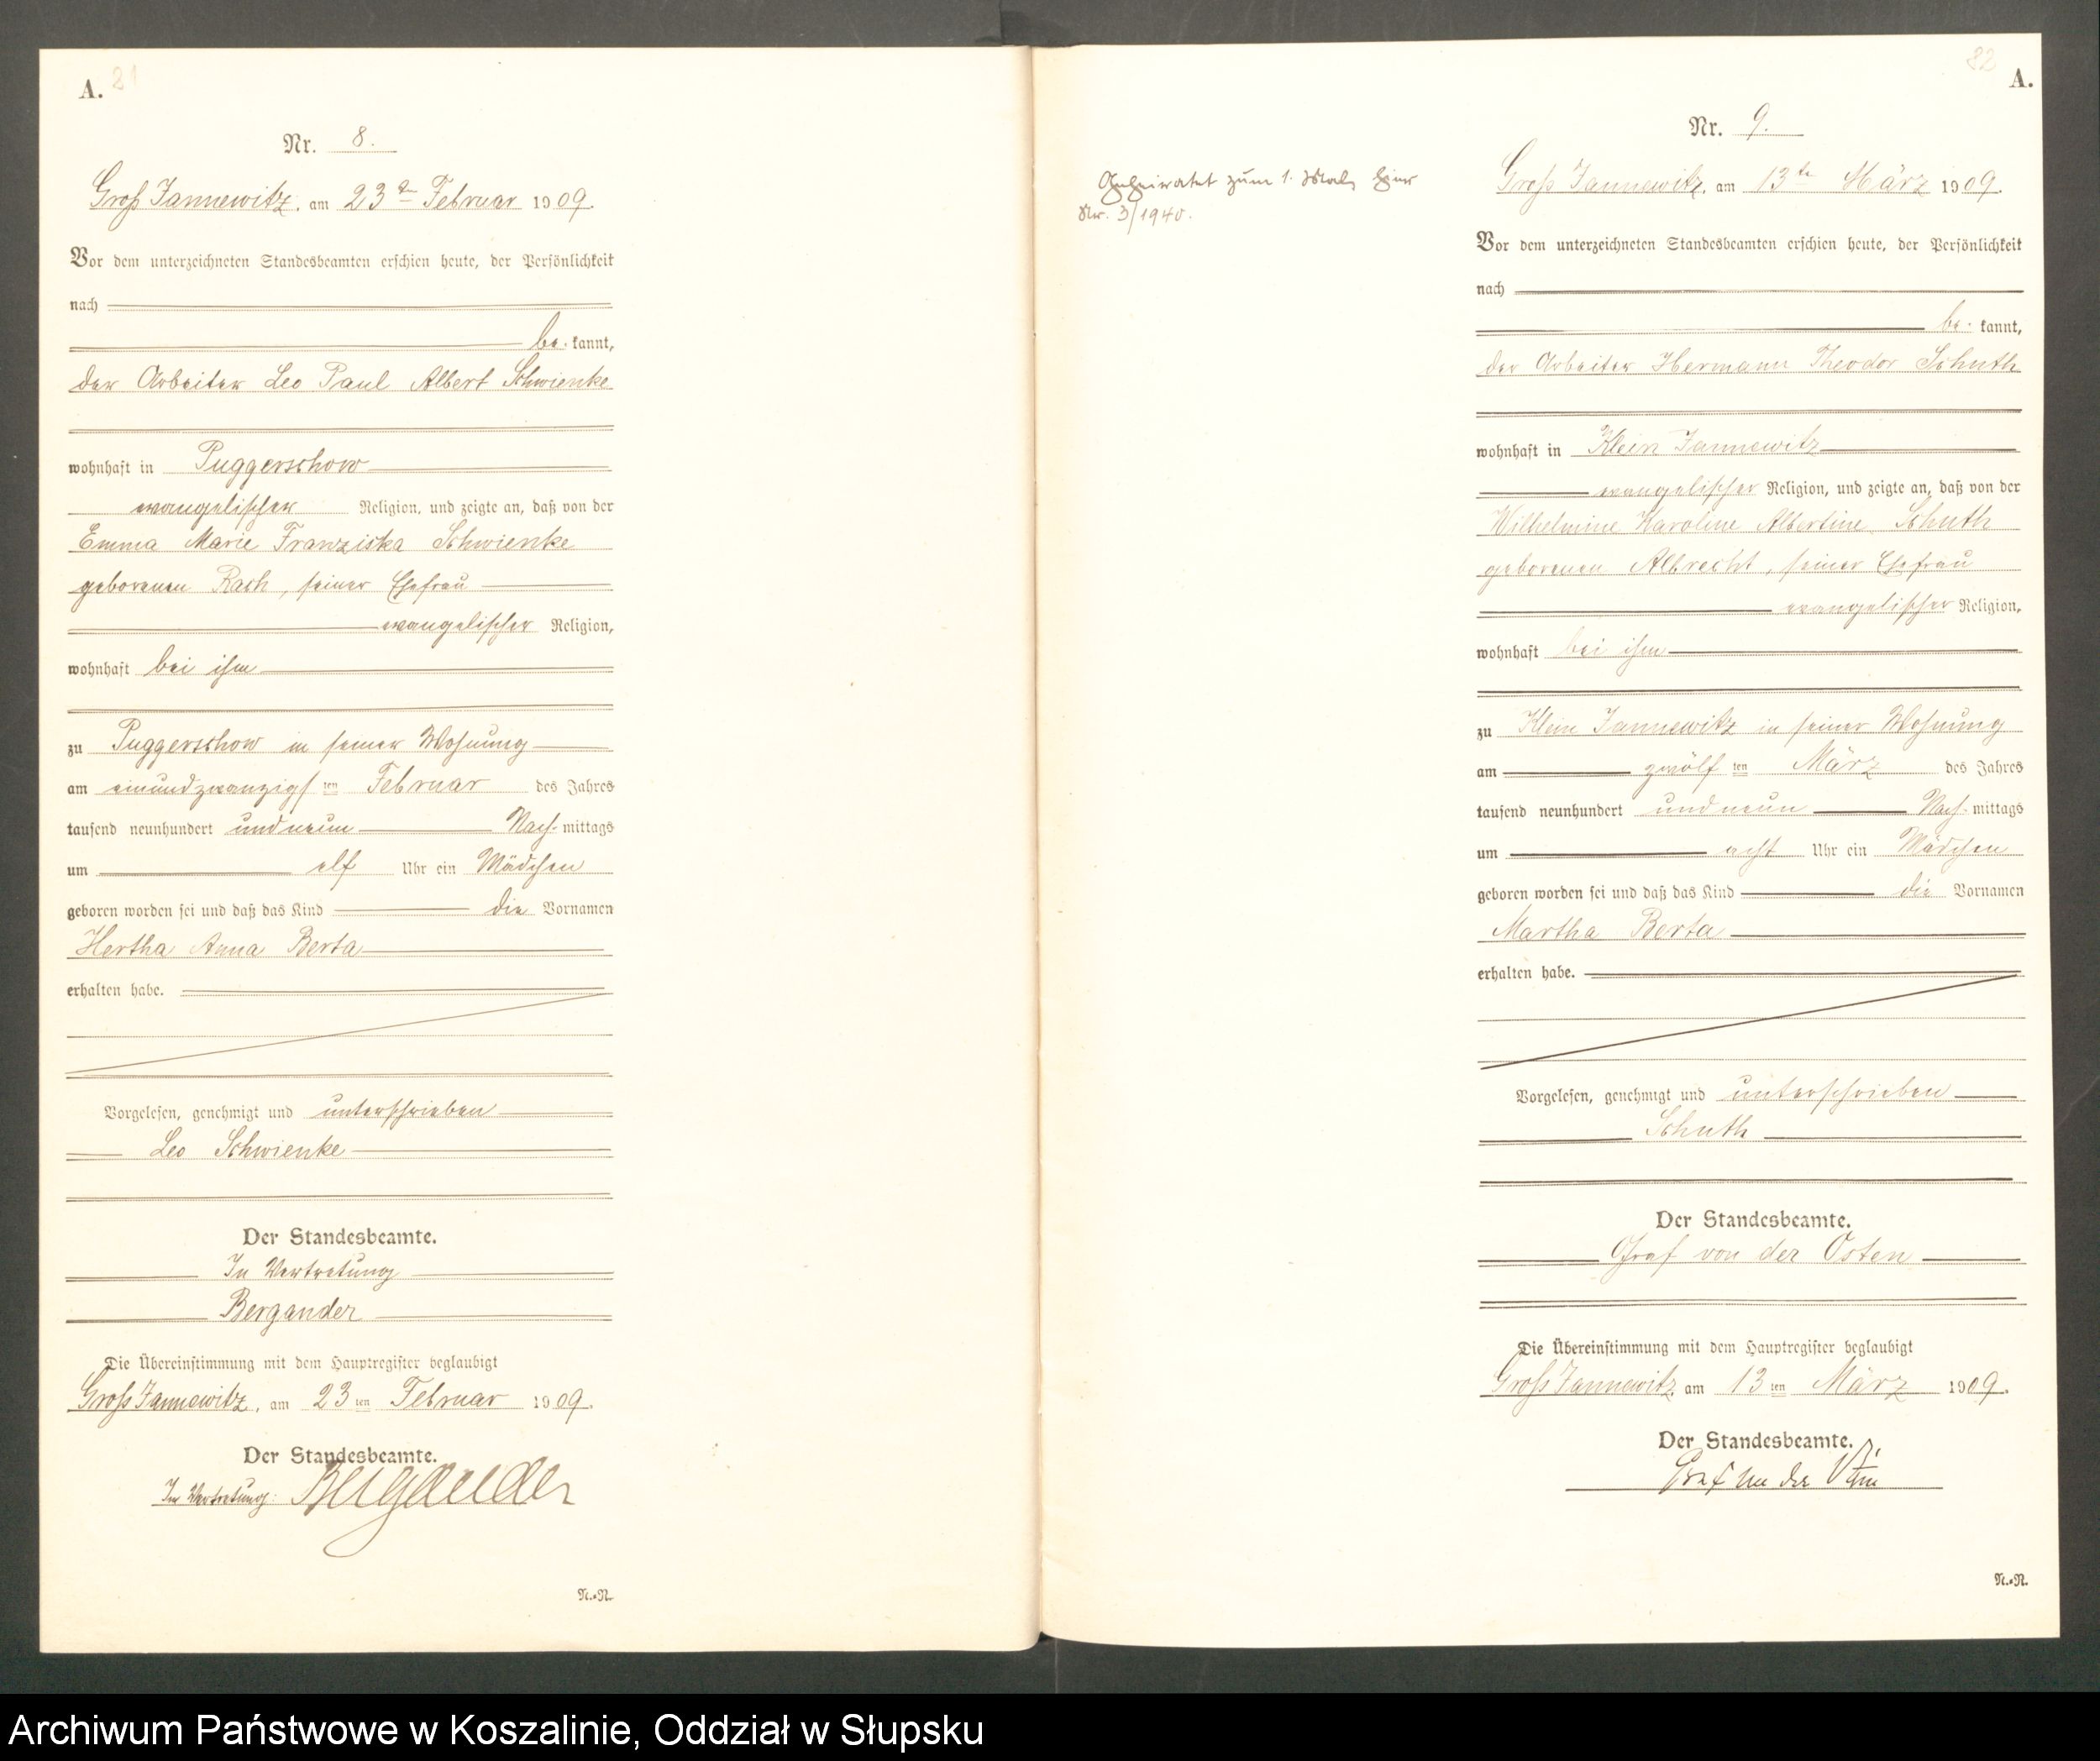 A. 81
Nr. 8.
Groß Jannewitz, am 23ten Februar 1909.
Vor dem unterzeichneten Standesbeamten erschien heute, der Persönlichkeit
nach
be- kannt,
der Arbeiter Leo Paul Albert Schwienke
wohnhaft in Puggerschow
evangelischer Religion, und zeigte an, daß von der
Emma Marie Franziska Schwienke
geborenen Rach, seiner Ehefrau
evangelischer Religion,
wohnhaft bei ihm
zu Puggerschow in seiner Wohnung
am einundzwanzigsten Februar des Jahres
tausend neunhundert und neun Nach- mittags
um elf Uhr ein Mädchen
geboren worden sei und daß das Kind die Vornamen
Hertha Anna Berta
erhalten habe.
Vorgelesen, genehmigt und unterschrieben
Leo Schwienke
Der Standesbeamte.
In Vertretung
Bergander
Die Übereinstimmung mit dem Hauptregister beglaubigt
Groß Jannewitz, am 23ten Februar 1909.
Der Standesbeamte.
In Vertretung: Bergander
N.=N.
82 A.
Geheiratet zum 1. Mal, hier
Nr. 3/1940.
Nr. 9.
Groß Jannewitz, am 13te März 1909.
Vor dem unterzeichneten Standesbeamten erschien heute, der Persönlichkeit
nach
be- kannt,
der Arbeiter Hermann Theodor Schuth
wohnhaft in Klein Jannewitz
evangelischer Religion, und zeigte an, daß von der
Wilhelmine Karoline Albertine Schuth
geborenen Albrecht, seiner Ehefrau
evangelischer Religion,
wohnhaft bei ihm
zu Klein Jannewitz in seiner Wohnung
am zwölf ten März des Jahres
tausend neunhundert und neun Nach- mittags
um acht Uhr ein Mädchen
geboren worden sei und daß das Kind die Vornamen
Martha Berta
erhalten habe.
Vorgelesen, genehmigt und unterschrieben
Schuth
Der Standesbeamte.
Graf von der Osten
Die Übereinstimmung mit dem Hauptregister beglaubigt
Groß Jannewitz, am 13ten März 1909.
Der Standesbeamte.
Graf von der Osten
N.=N.
Archiwum Państwowe w Koszalinie, Oddział w Słupsku